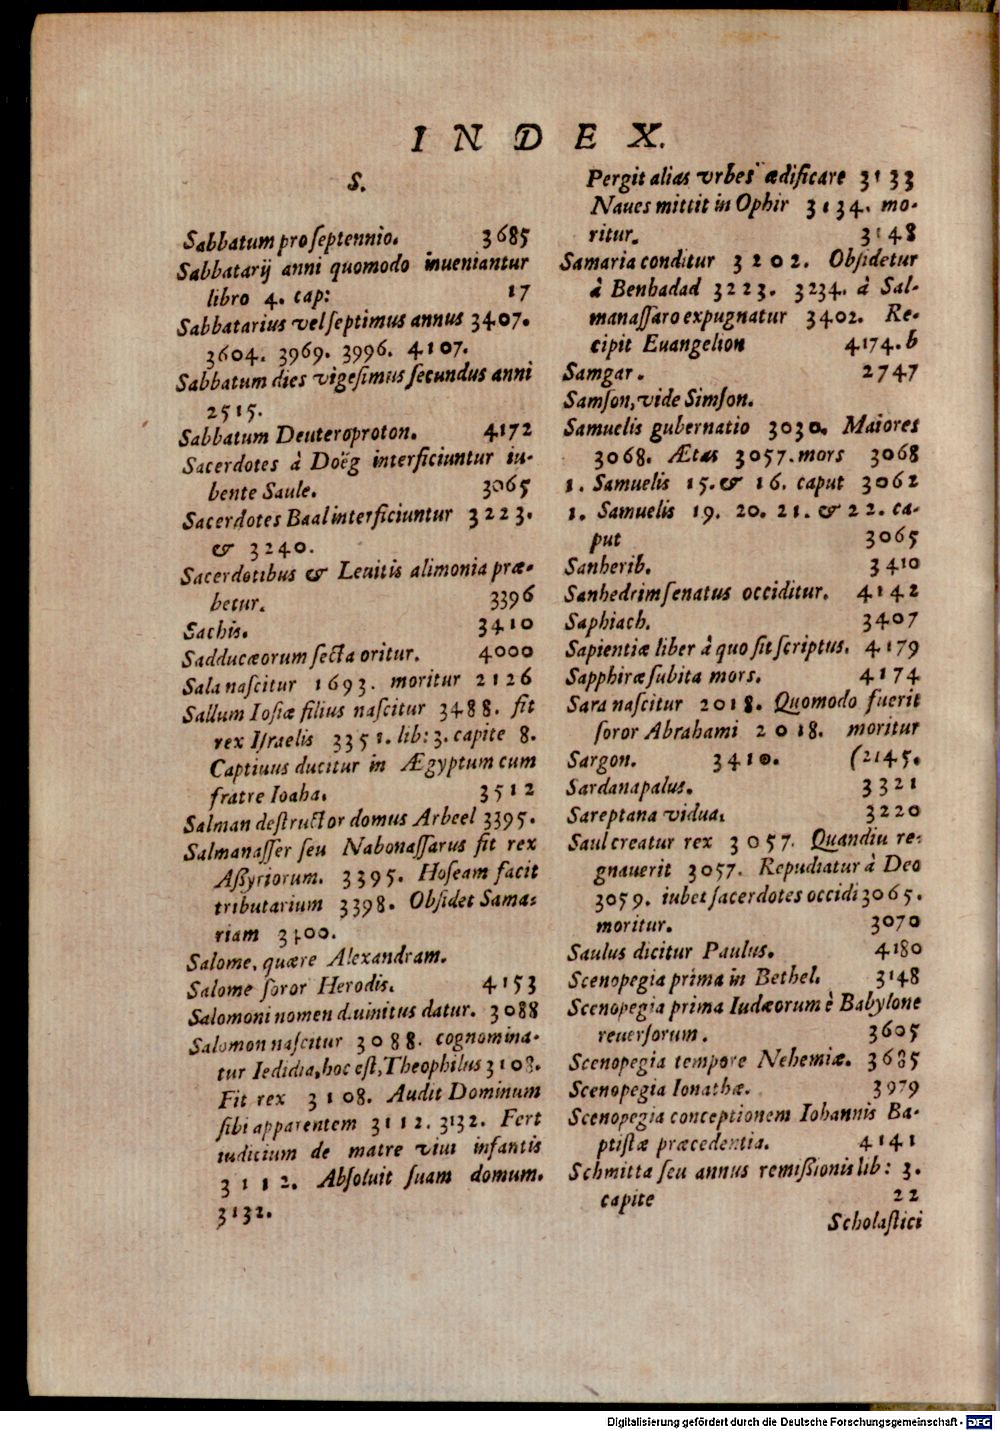 INDEX.
S.
Sabbatum pro ſeptennio. 3685
Sabbatarij anni quomodo inueniantur
libro 4. cap: 17
Sabbatarius vel ſeptimus annus 3407.
3604. 3969. 3996. 4107.
Sabbatum dies vigeſimus ſecundus anni
2515.
Sabbatum Deuteroproton. 4172
Sacerdotes à Doëg interficiuntur iu-
bente Saule. 3065
Sacerdotes Baal interficiuntur 3223.
& 3240.
Sacerdotibus & Leuitis alimonia præ-
betur. 3396
Sachis. 3410
Sadducæorum ſecta oritur. 4000
Sala naſcitur 1693. moritur 2126
Sallum Ioſiæ filius naſcitur 3488. fit
rex Iſraelis 3351. lib: 3. capite 8.
Captiuus ducitur in Ægyptum cum
fratre Ioaha. 3512
Salman deſtructor domus Arbeel 3395.
Salmanaſſer ſeu Nabonaſſarus fit rex
Aßyriorum. 3395. Hoſeam facit
tributarium 3398. Obſidet Sama-
riam 3400.
Salome, quære Alexandram.
Salome ſoror Herodis. 4153
Salomoni nomen diuinitus datur. 3088
Salomon naſcitur 3088. cognomina-
tur Iedidia, hoc eſt, Theophilus 3108.
Fit rex 3108. Audit Dominum
ſibi apparentem 3112. 3132. Fert
iudicium de matre viui infantis
3112. Abſoluit ſuam domum.
3132.
Pergit alias vrbes ædificare 3133
Naues mittit in Ophir 3134. mo-
ritur. 3148
Samaria conditur 3202. Obſidetur
à Benhadad 3223. 3234. à Sal-
manaſſaro expugnatur 3402. Re-
cipit Euangelion 4174.b
Samgar. 2747
Samſon, vide Simſon.
Samuelis gubernatio 3030. Maiores
3068. Ætas 3057. mors 3068
1. Samuelis 15. & 16. caput 3062
1. Samuelis 19. 20. 21. & 22. ca-
put 3065
Sanherib. 3410
Sanhedrim ſenatus occiditur. 4142
Saphiach. 3407
Sapientiæ liber à quo ſit ſcriptus. 4179
Sapphiræ ſubita mors. 4174
Sara naſcitur 2018. Quomodo fuerit
ſoror Abrahami 2018. moritur
Sargon. 3410. (2145.
Sardanapalus. 3321
Sareptana vidua. 3220
Saul creatur rex 3057. Quandiu re-
gnauerit 3057. Repudiatur à Deo
3059. iubet ſacerdotes occidi 3065.
moritur. 3070
Saulus dicitur Paulus. 4180
Scenopegia prima in Bethel. 3148
Scenopegia prima Iudæorum è Babylone
reuerſorum. 3605
Scenopegia tempore Nehemiæ. 3685
Scenopegia Ionathæ. 3979
Scenopegia conceptionem Iohannis Ba-
ptiſtæ præcedentia. 4141
Schmitta ſeu annus remißionis lib: 3.
capite 22
Scholaſtici
Digitalisierung gefördert durch die Deutsche Forschungsgemeinschaft - DFG